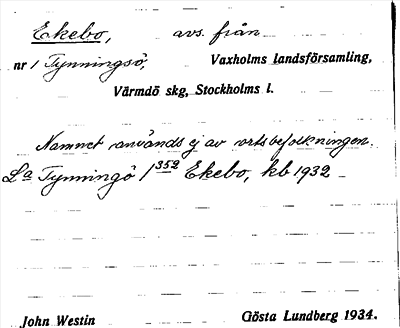 Ekebo, avs. från
nr 1 Tynningsö, Vaxholms landsförsamling,
Värmdö skg, Stockholms l.
Namnet används ej av ortsbefolkningen.
La Tynningö 1352 Ekebo, kb 1932
John Westin Gösta Lundberg 1934.